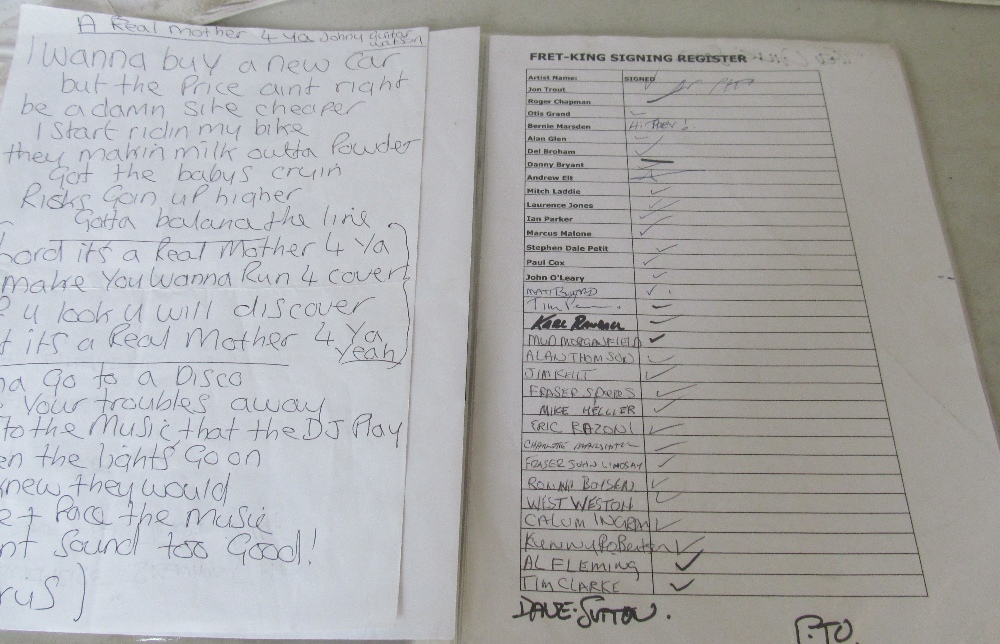 A Real Mother 4 Ya Johny Guitar
Watson
I wanna buy a new Car
but the Price aint right
be a damn site cheaper
I start ridin my bike
they makin milk outta Powder
Got the babys cryin
Ricks Goin up higher
Gotta balance the line
Lord it's a Real Mother 4 Ya
make You wanna Run 4 cover
u look u will discover
its a Real Mother 4 Ya
Yeah
Go to a Disco
Your troubles away
to the Music that the DJ Play
the lights Go on
knew they would
Face the Music
Sound too Good!
FRET-KING SIGNING REGISTER
Artist Name: SIGNED
Jon Trout
Roger Chapman
Otis Grand
Bernie Marsden Hi There!
Alan Glen
Del Broham
Danny Bryant
Andrew Elt
Mitch Laddie
Laurence Jones
Ian Parker
Marcus Malone
Stephen Dale Petit
Paul Cox
John O'Leary
Tim
Karl
MUD MORGANFIELD
ALAN THOMSON
JIM KEILT
FRASER SPEIRS
MIKE HELLIER
ERIC RAZONI
CHARLOTTE
FRASER JOHN LINDSAY
RONNI BOYSEN
WEST WESTON
CALUM INGRAM
Kenny Roberton
AL FLEMING
TIM CLARKE
DAVE SUTTON.
P.TO.